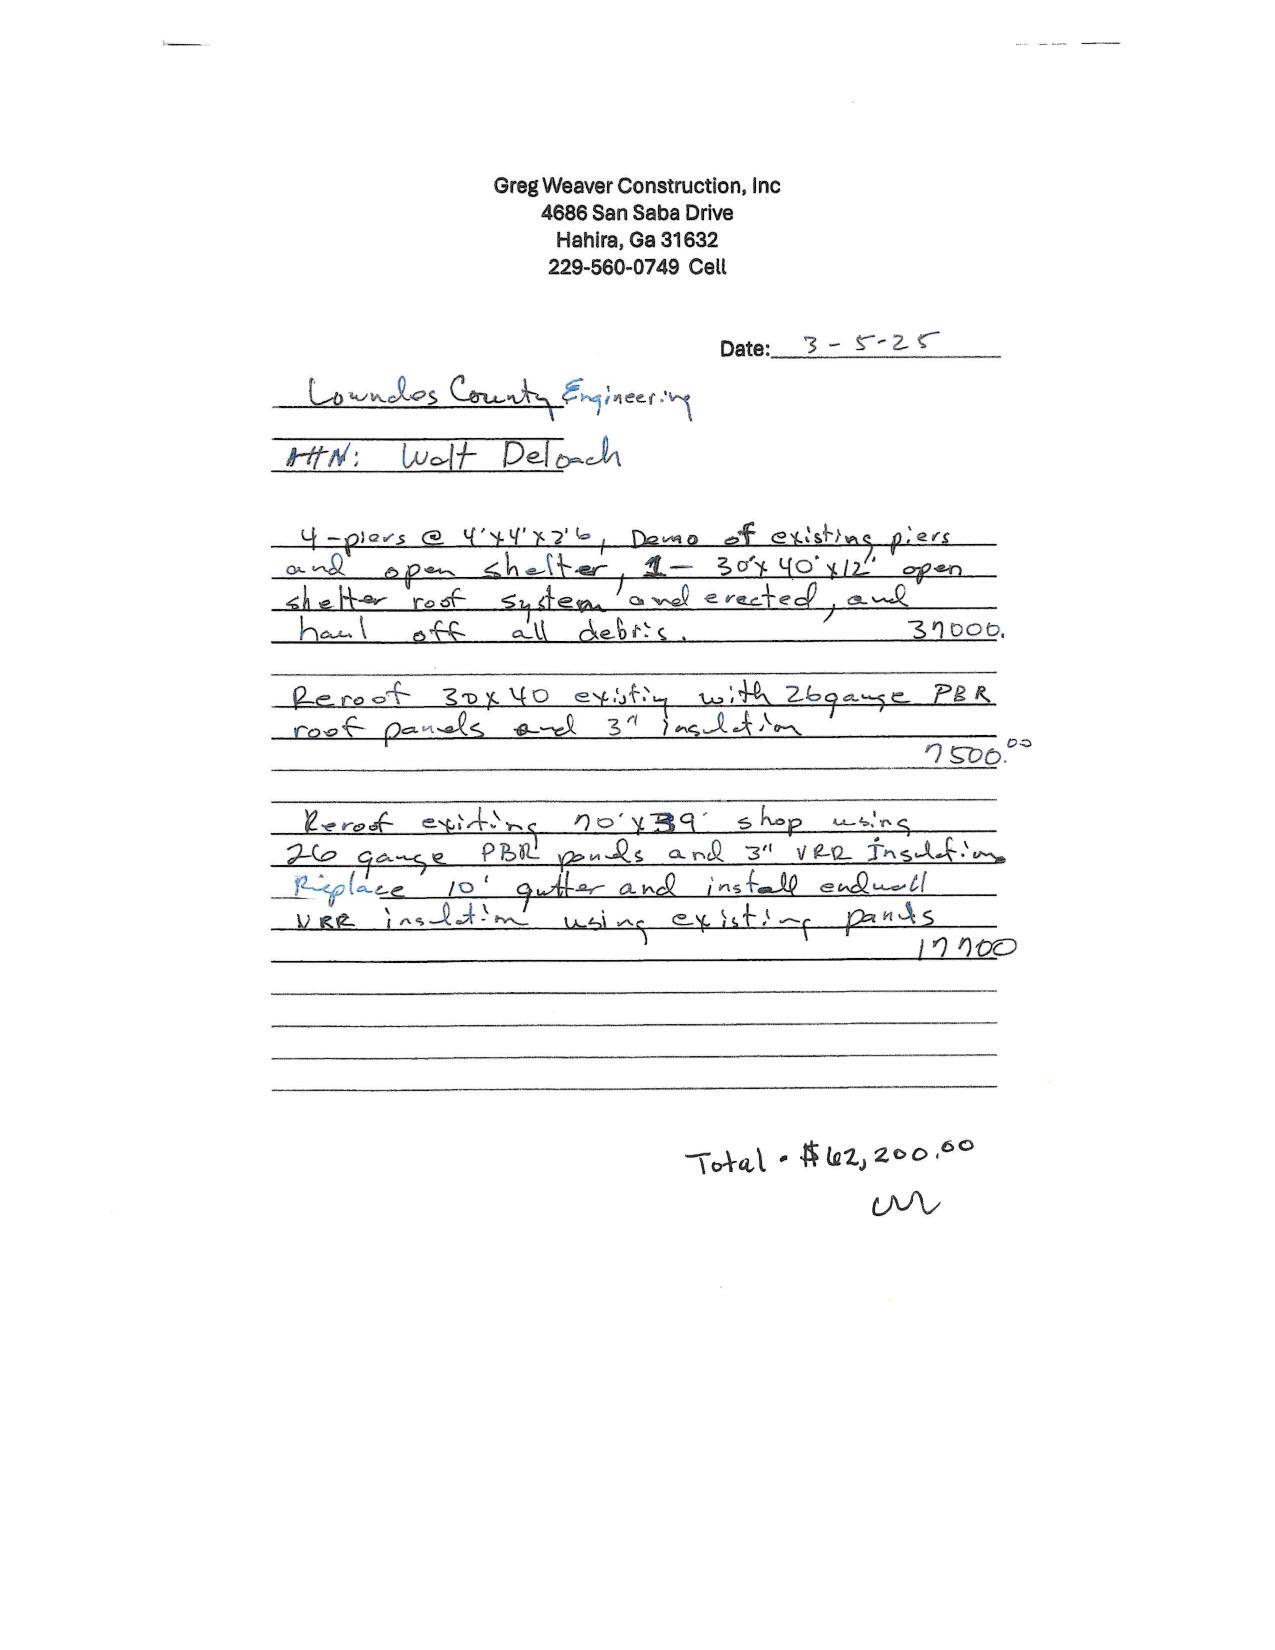 Greg Weaver Construction, Inc
4686 San Saba Drive
Hahira, Ga 31632
229-560-0749 Cell
Date: 3-5-25
Lowndes County Engineering
Attn: Walt Deloach
4-piers @ 4'x4'x2'6, Demo of existing piers
and open shelter, 1- 30'x 40'x12' open
shelter roof system and erected, and
haul off all debris. 37000.
Reroof 30x40 existing with 26gauge PBR
roof panels and 3" insulation
7500.00
Reroof existing 70'x39' shop using
26 gauge PBR panels and 3" VRR Insulation
Replace 10' gutter and install endwall
VRR insulation using existing panels
17700
Total - $62,200.00